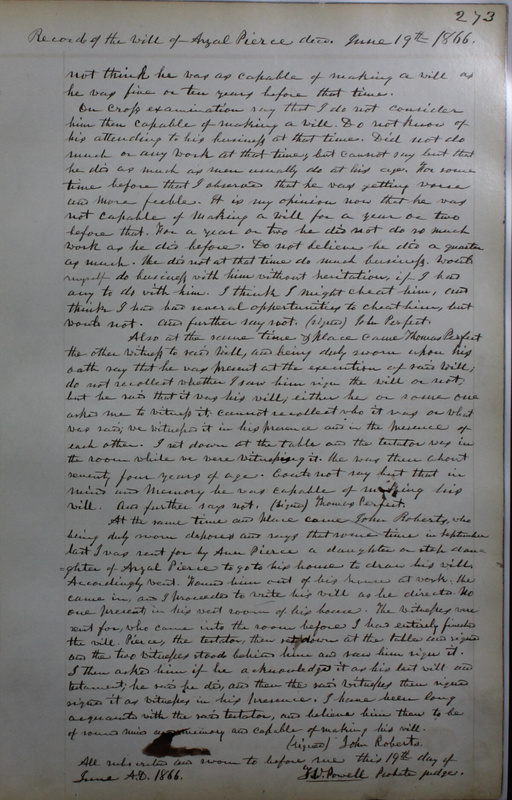 273
Record of the Will of Azal Pierce decd. June 19th 1866.
not think he was as capable of making a will as
he was five or ten years before that time.
On cross examination say that I do not consider
him then capable of making a will. Do not know of
his attending to his business at that time. Did not do
much or any work at that time, but cannot say but that
he did as much as men usually do at his age. For some
time before that I observed that he was getting worse
and more feeble. It is my opinion now that he was
not capable of making a will for a year or two
before that. For a year or two he did not do so much
work as he did before. Do not believe he did a quarter
as much. He did not at that time do much business. Would
myself do business with him without hesitation, if I had
any to do with him. I think I might cheat him, and
think I had had several opportunities to cheat him, but
would not. And further say not. (signed) John Perfect.
Also at the same time & place came Thomas Perfect
the other witness to said Will, and being duly sworn upon his
oath say that he was present at the execution of said will;
do not recollect whether I saw him sign the will or not,
but he said that it was his will; either he or some one
asked me to witness it; cannot recollect who it was or what
was said; we witnessed it in his presence and in the presence of
each other. I set down at the table and the testator was in
the room while we were witnessing it. He was then about
seventy four years of age. Could not say but that in
mind and memory he was capable of making his
will. And further says not. (signed) Thomas Perfect.
At the same time and place came John Roberts, who
being duly sworn deposes and says that some time in September
last I was sent for by Ann Pierce a daughter or step dau-
=ghter of Azal Pierce to go to his house to draw his will.
Accordingly went. Found him out of his house at work. He
came in, and I proceeded to write his will as he directed. No
one present, in his west room of his house. The witnesses were
sent for, who came into the room before I had entirely finished
the will. Pierce, the testator, then set down at the table and signed
and the two witnesses stood behind him and saw him sign it.
I then asked him if he acknowledged it as his last will and
testament; he said he did, and then the said witnesses then signed
signed it as witnesses in his presence. I have been long
acquainted with the said testator, and believe him then to be
of sound mind and memory and capable of making his will.
(signed) John Roberts.
All subscribed and sworn to before me this 19th day of
June A.D. 1866. F.W. Powell Probate judge.